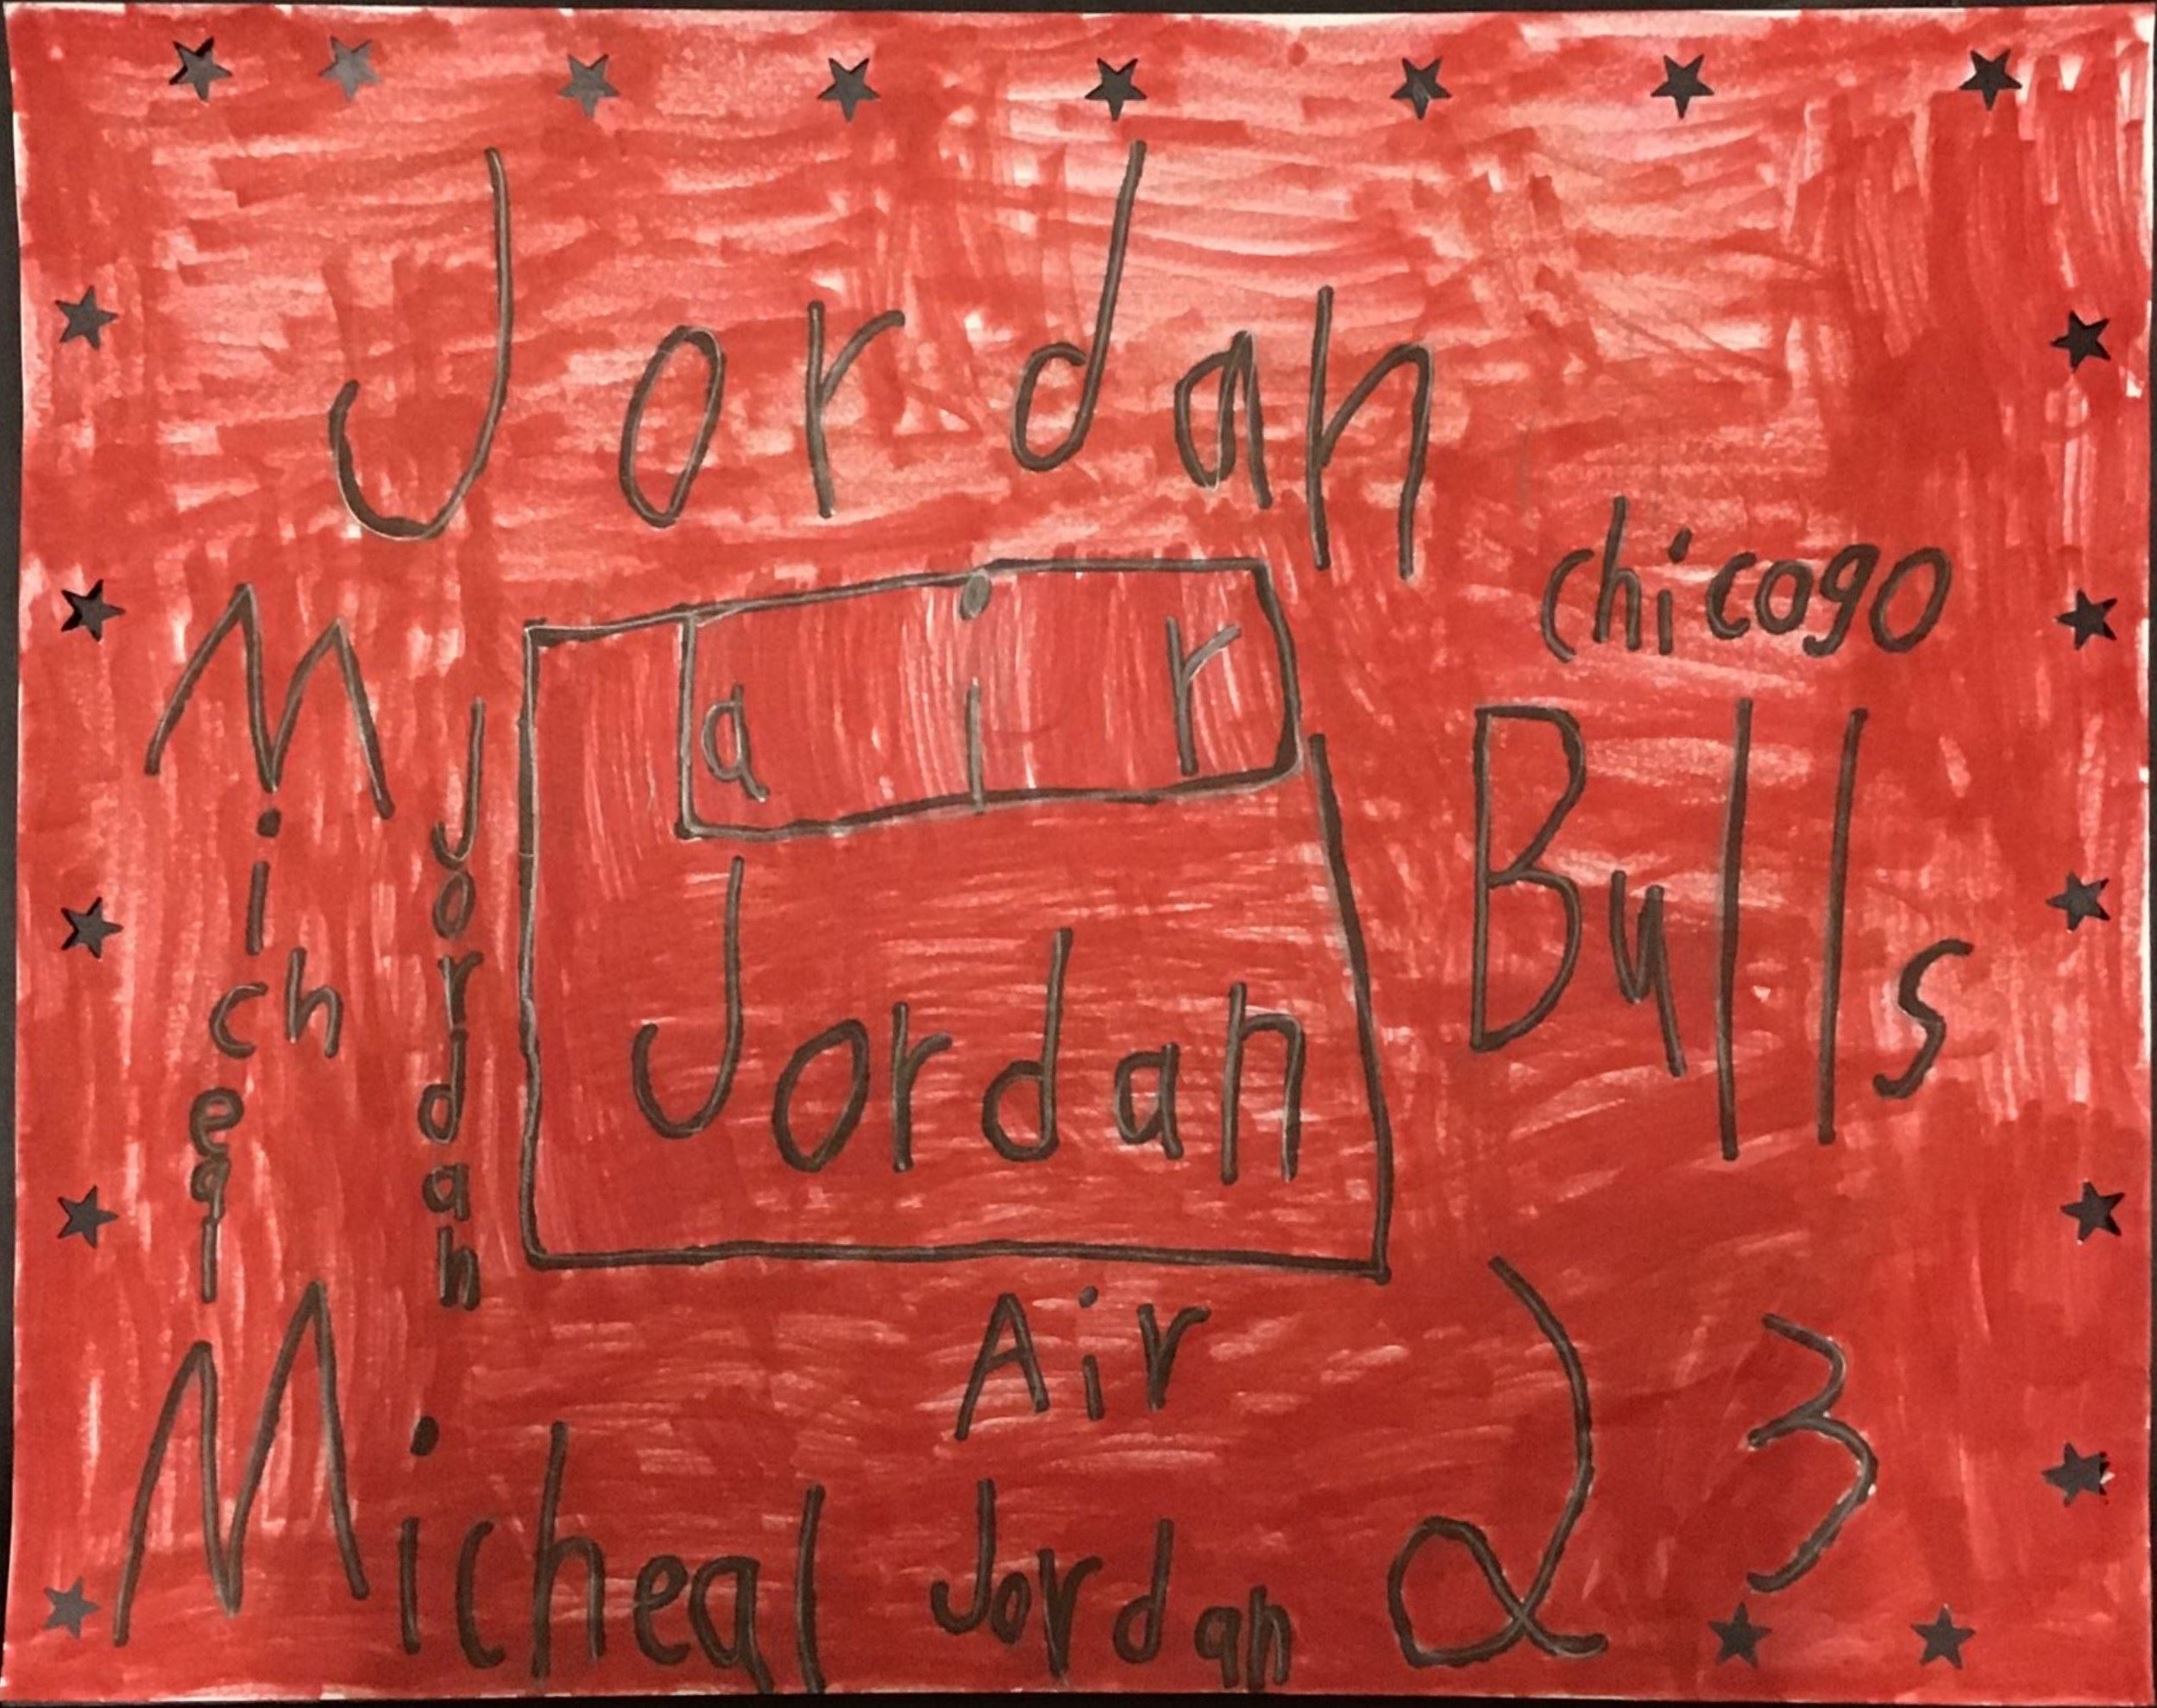 Jordan
chicogo
Bulls
Micheal
Jordan
air
Jordan
Air
Micheal Jordan 23